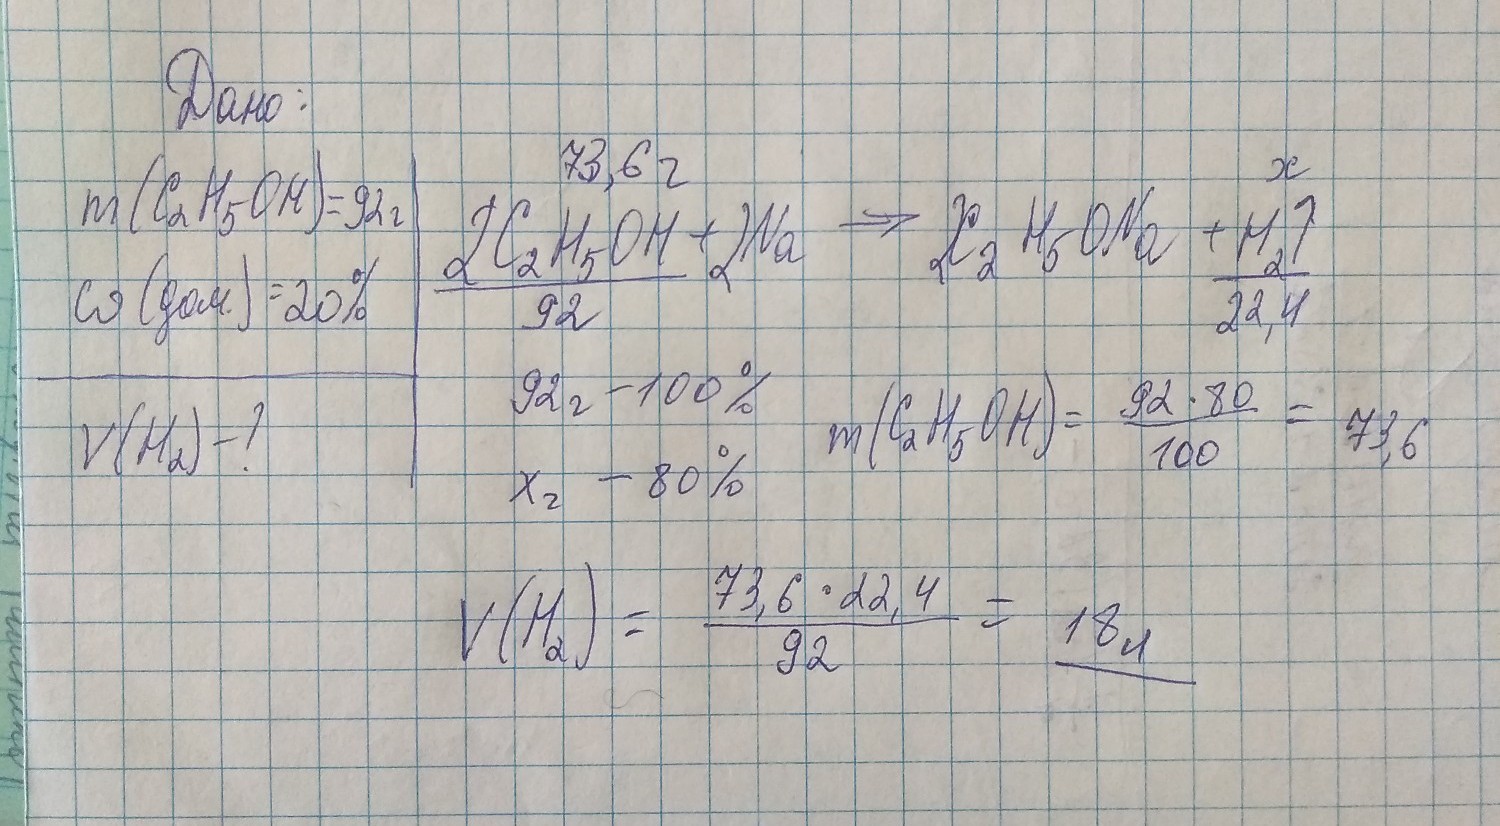 Дано:
m(C₂H₅OH)=92г
ω(дом.)=20%
V(H₂)-?
73,6г
x
2C₂H₅OH + 2Na → 2C₂H₅ONa + H₂↑
92
22,4
92г - 100%
xг - 80%
m(C₂H₅OH) = 92·80 / 100 = 73,6
V(H₂) = 73,6·22,4 / 92 = 18л